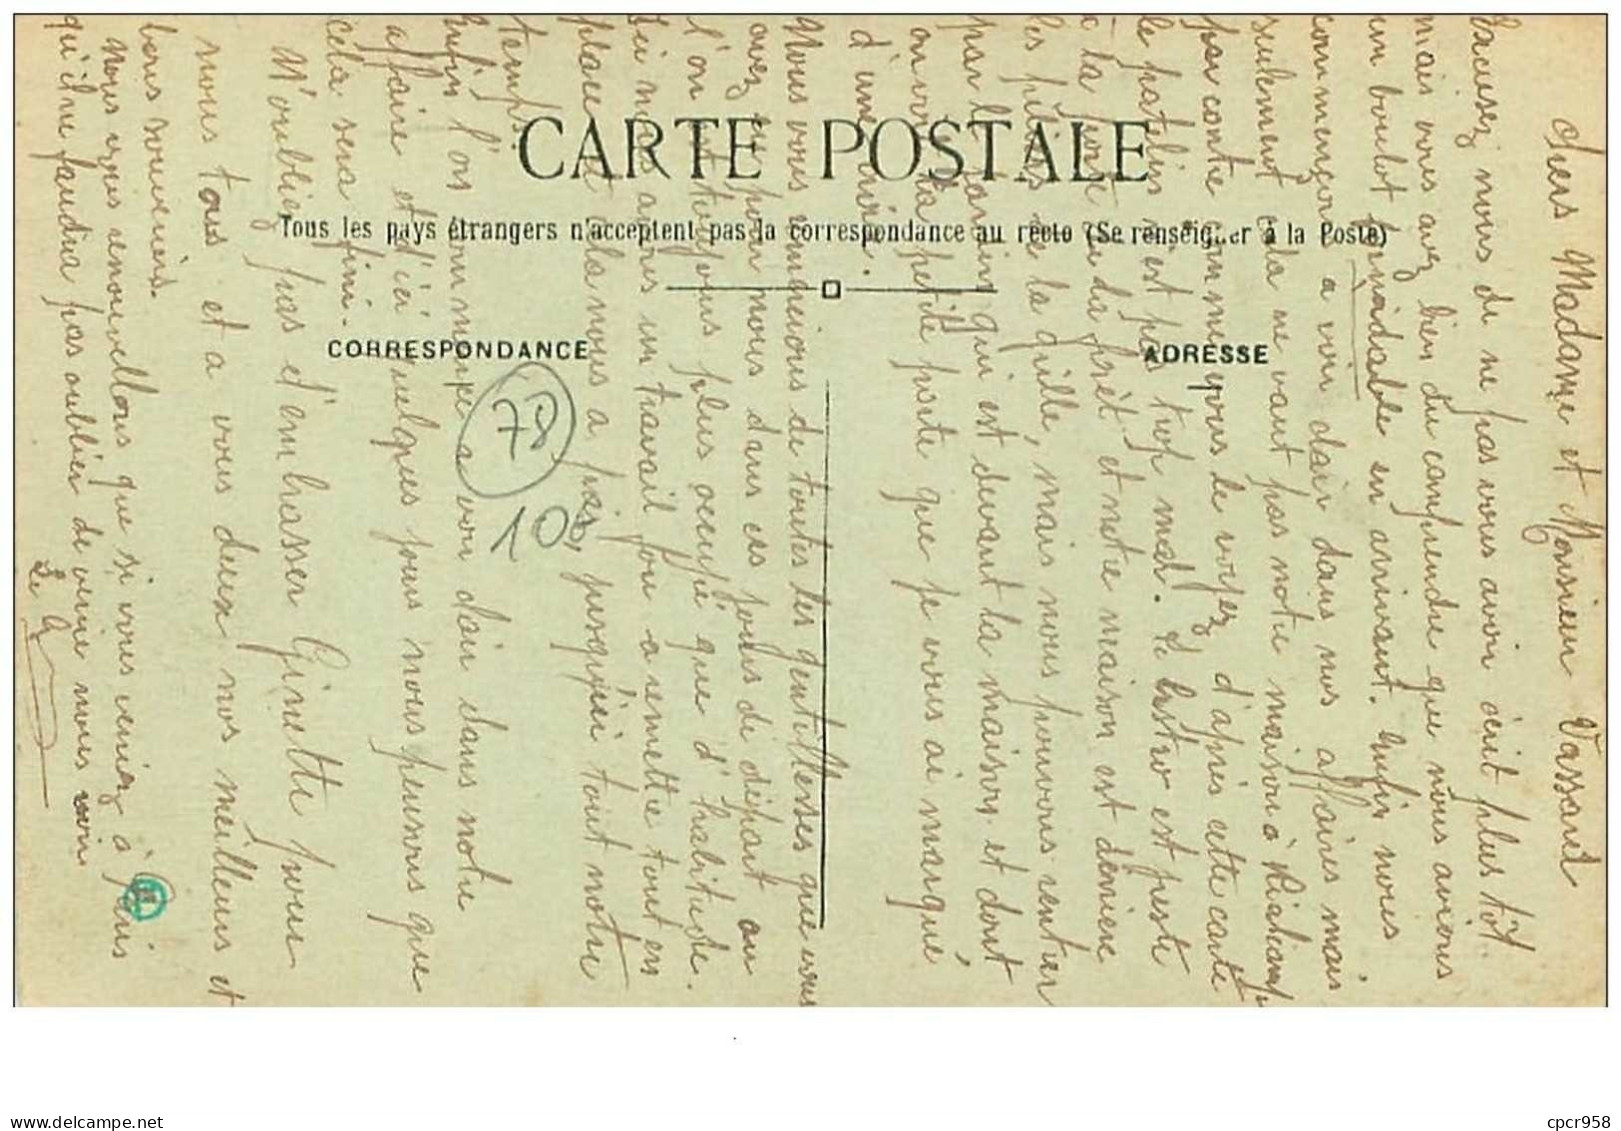 CARTE POSTALE
Tous les pays étrangers n'acceptent pas la correspondance au recto (Se renseigner à la Poste)
CORRESPONDANCE
ADRESSE
78
10
Chers Madame et Monsieur Vassard
Excusez nous de ne pas vous avoir écrit plus tôt.
mais vous avez bien du comprendre que nous avions
un boulot formidable en arrivant. Enfin nous
commençons a voir clair dans nos affaires mais
seulement cela ne vaut pas notre maison à
par contre comme vous le voyez d'après cette carte
le patelin n'est pas trop mal. le bistro est juste
a la porte du prêt et notre maison est derrière
les pubes de la grille, mais nous pouvons rentrer
par le jardin qui est devant la maison et dont
on voit la petite porte que je vous ai marqué
d'une
Nous vous remercions de toutes les gentillesses que vous
avez eu pour nous dans ces jours de départ ou
l'on est toujours plus occupé que d'habitude.
Ici nous avons un travail fou a remettre tout en
place et cela nous a pris jusqu'ici tout notre
temps.
Enfin l'on commence a voir clair dans notre
affaire et d'ici quelques jours nous pensons que
cela sera fini.
N'oubliez pas d'embrasser Ginette pour
nous tous et a vous deux nos meilleurs et
bons souvenirs.
Nous vous renouvellons que si vous veniez à Paris
qu'il ne faudra pas oublier de venir nous voir
cpcr958